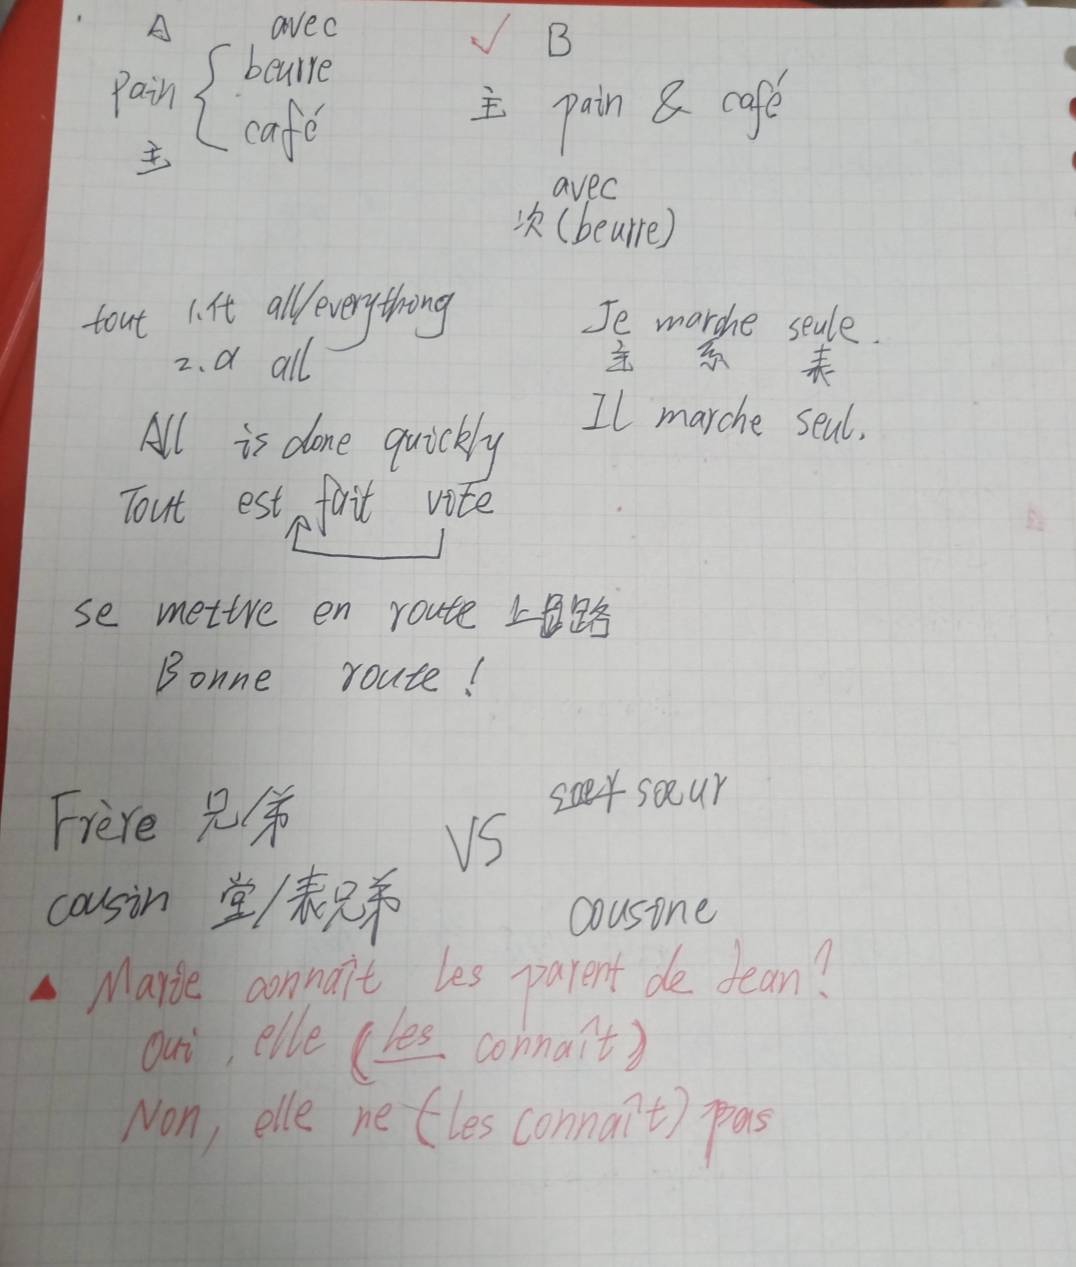 A avec
pain { beurre
café
主
✓ B
主 pain & café
avec
次 (beurre)
tout 1.代 all/everything
2.a all
Je marche seule.
主 系 表
Il marche seul.
All is done quickly
Tout est fait vite
se mettre en route 上路
Bonne route !
Frère 兄/弟 VS sœur
cousin 堂/表兄弟 cousine
▲ Marie connaît les parent de Jean?
Oui, elle (les connaît)
Non, elle ne (les connaît) pas